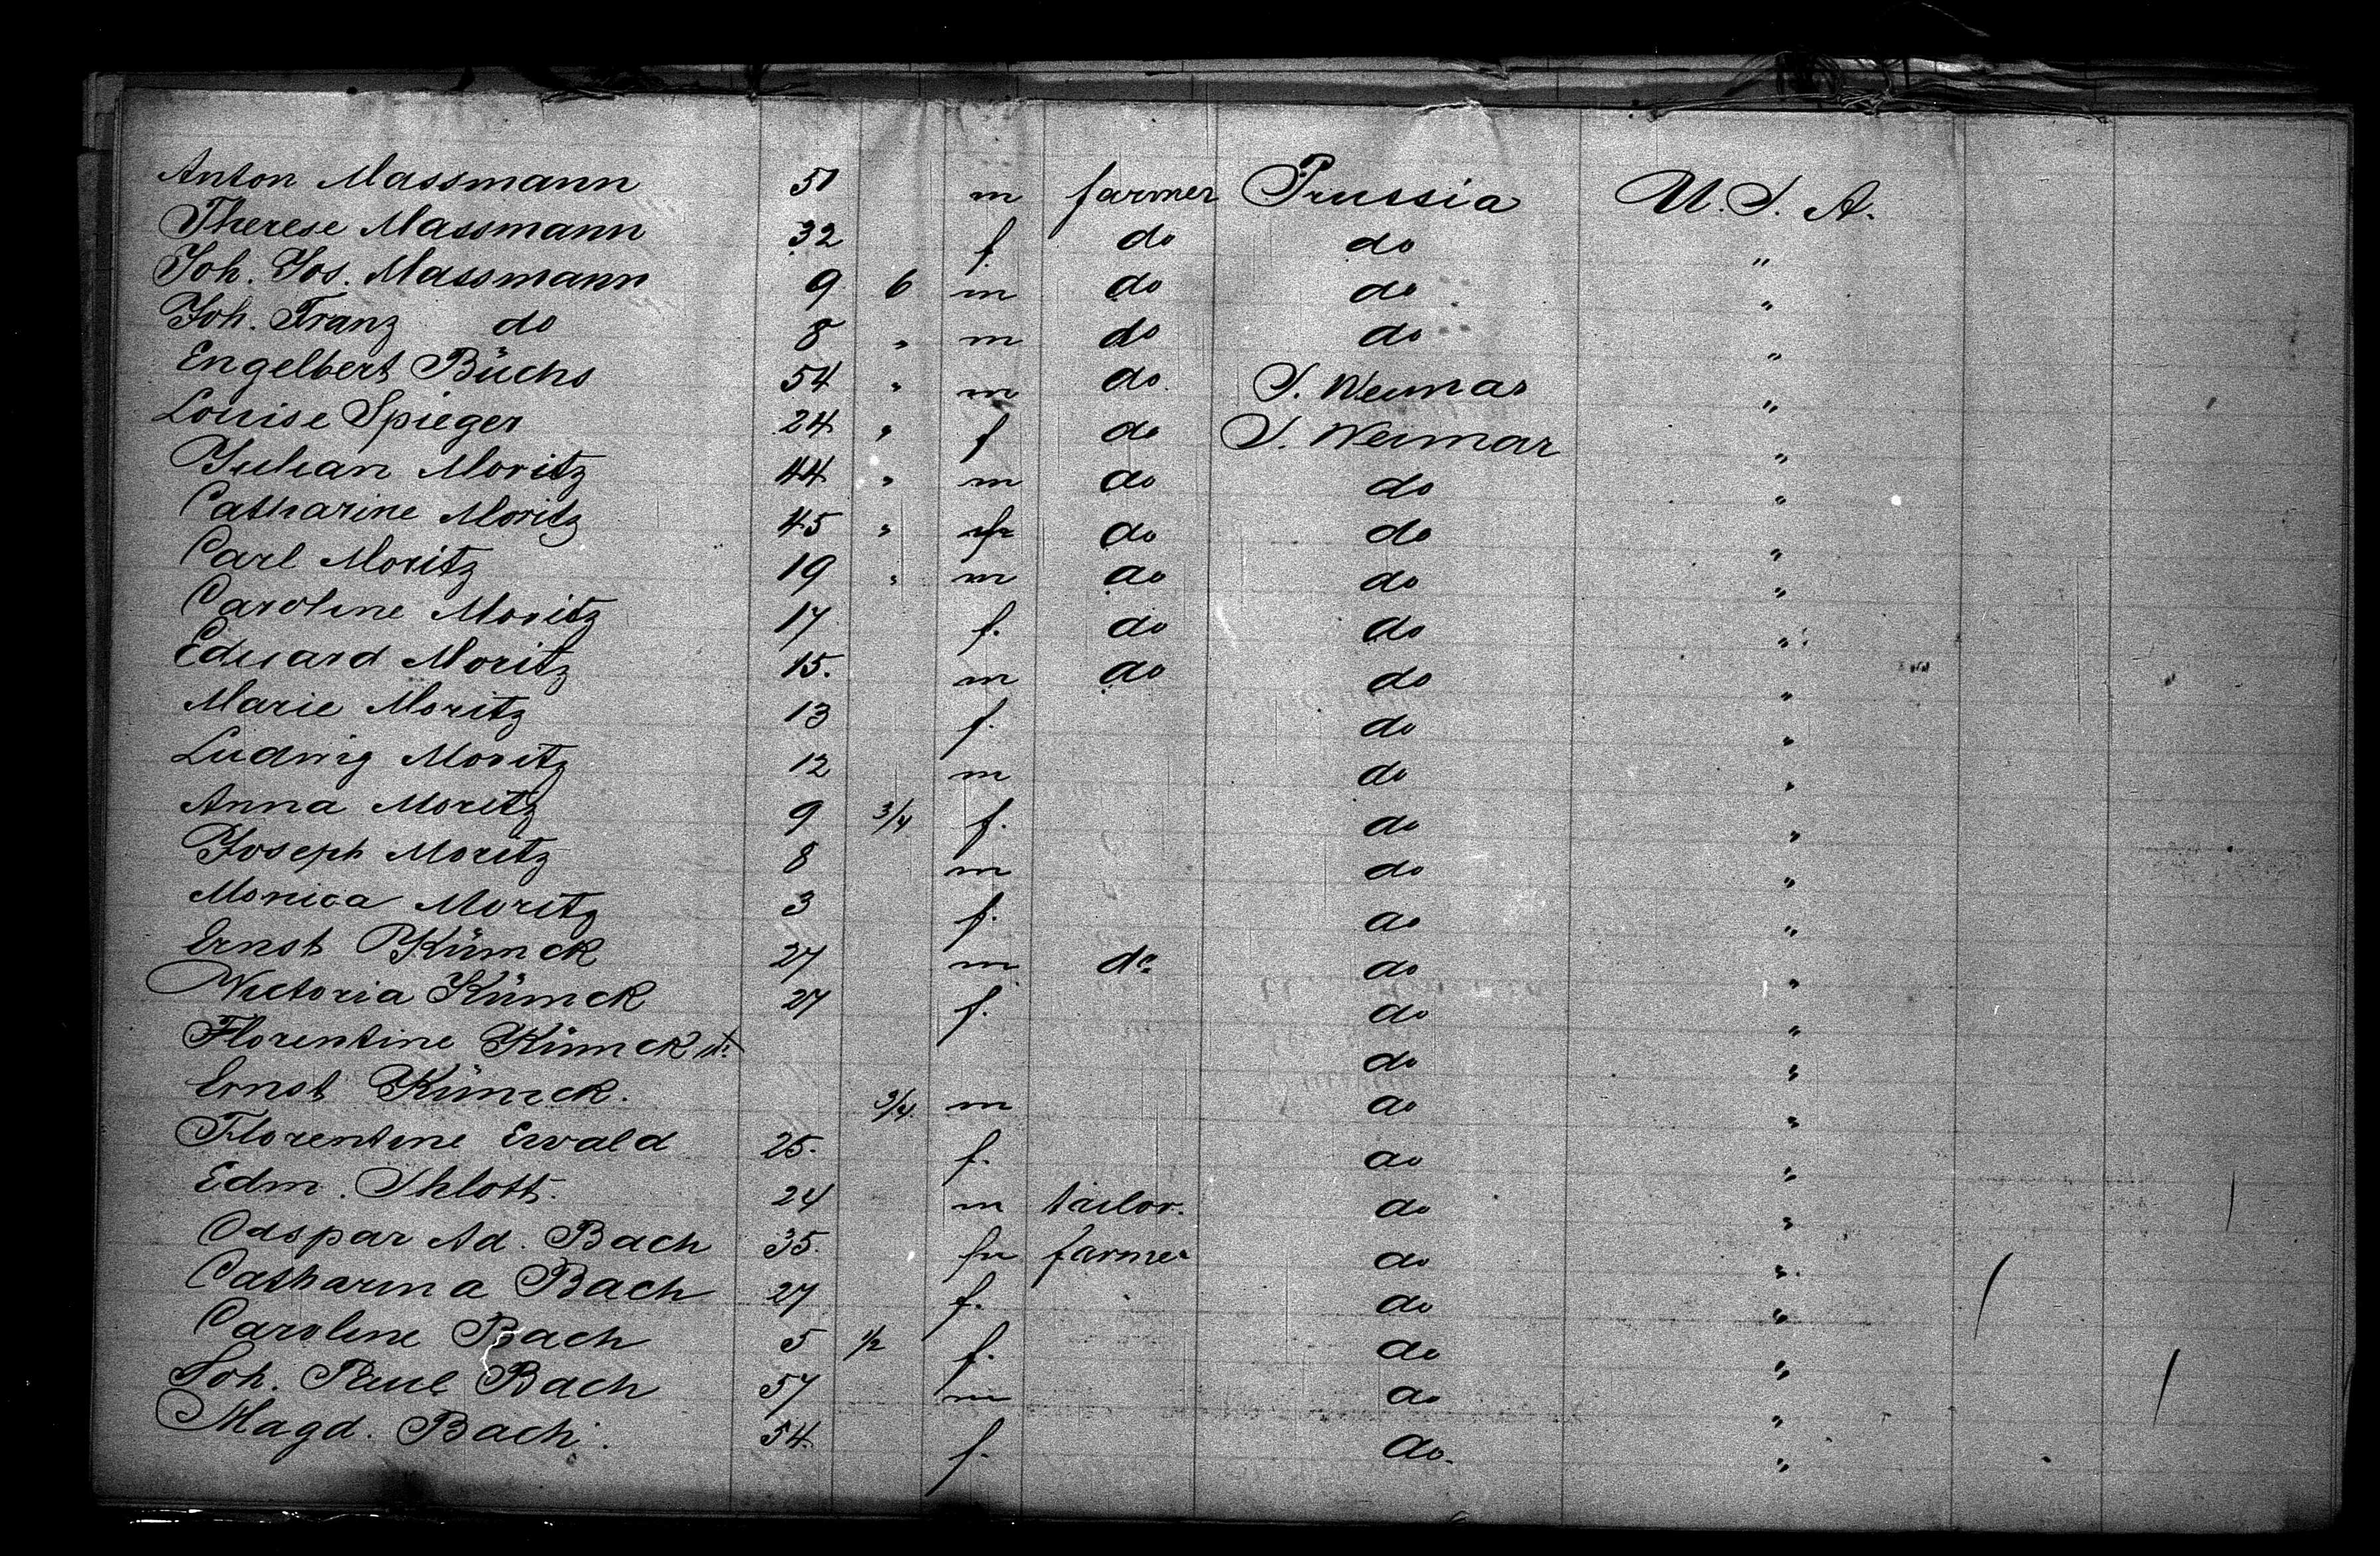 Anton Massmann 51 m farmer Prussia U. S. A.
Therese Massmann 32 f do do "
Joh. Jos. Massmann 9 6 m do do "
Joh. Franz do 8 " m do do "
Engelbert Büchs 54 " m do. S. Weimar "
Louise Spieger 24 " f do S. Weimar "
Julian Moritz 44 " m do do "
Catharine Moritz 45 " f do do "
Carl Moritz 19 " m do do "
Caroline Moritz 17 f. do do "
Eduard Moritz 15. m do do "
Marie Moritz 13 f. do "
Ludwig Moritz 12 m do "
Anna Moritz 9 3/4 f. do "
Joseph Moritz 8 m do "
Monica Moritz 3 f. do "
Ernst Kümck 27 m do do "
Victoria Kümck 27 f. do "
Florentine Kümck do "
Ernst Kümck. 3/4 m do "
Florentine Ewald 25. f. do "
Edm. Shlott. 24 m tailor. do "
Caspar Ad. Bach 35. m farmer do "
Catharina Bach 27 f. do "
Caroline Bach 5 1/2 f. do "
Joh. Paul Bach 57 m do "
Magd. Bach. 54. f. do. "